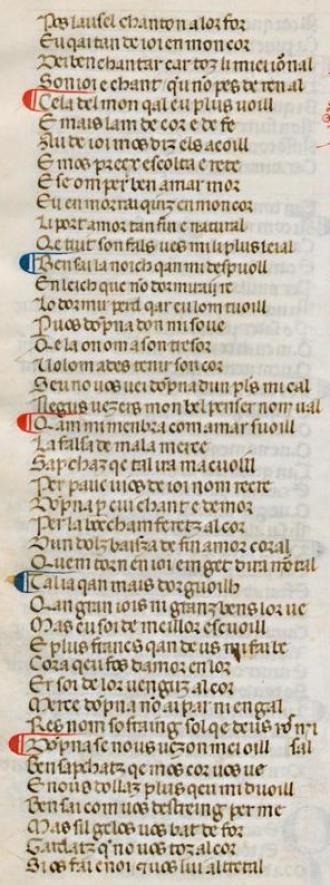 Pos lausel chanton alor for
Eu qai tan de ioi en mon cor
Dei ben chantar car toz li miei iōnal
Son ioi e chant qu nō pes de ren al
Cela del mon qal eu plus uoill
E mais lam de cor e de fe
Au de ioi mos diz els acoill
E mos precx escolta e rete
E se om per ben amar mor
Eu en morrai quinz en mon cor
Li port amor tan fin e natural
Qe tuit son fals ues mi li plus leial
Ben sai la noich qan mi despuoll
En leich que nō dormirai re
Lo dormir perd qar eu lom tuoill
P uos dōpna don mi soue
Qe la on om a son tresor
Uol om ades tenir son cor
Seu no uos uei dōpna dun pls mi cal
Negus uezers mon bel penser nom ual
Qan mi menbra com amar suoill
La falsa de mala merce
Sapchaz qe tal ira ma cuoill
Per pauc uios de ioi nom recre
Dōpna p cui chant e demor
Per la bocham feretz al cor
Dun dolz baisza de fin amor coral
Quem torn en ioi em get dira mōtal
Tal ia qan mais dorguoilh
Qan gran iois ni granz bens lor ue
Mas eu soi de meillor escuoill
E plus francs qan deus mi fai be
Cora qeu fos damor en lor
Er soi de lor uenguz al cor
Merce dōpna no ai par ni engal
Res nom sofraing sol qe deus uos mi sal
Dōpna se nous uezon mei oill
Ben sapchatz qe mos cor uos ue
E nous dollatz plus qeu mi duoill
Ben sai com uos destreing per me
Mas sil gelos uos bat de for
Gardatz q no uos toz al cor
Si os fai enoi quos lui altretal